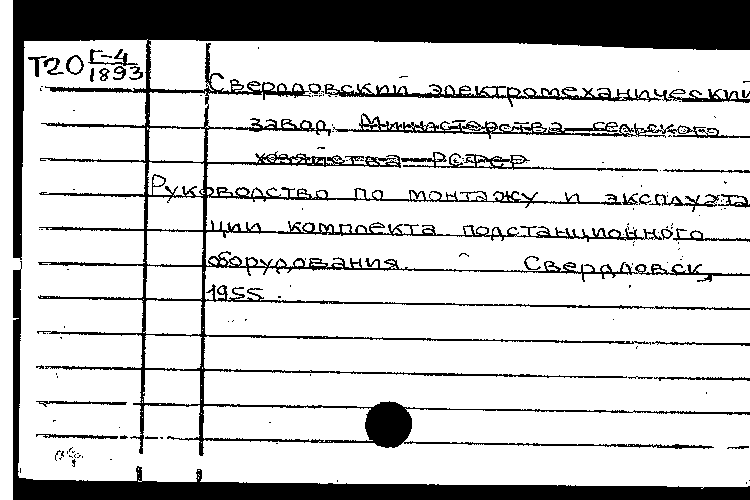 Т20 Г-4/1893
Свердловский электромеханический
завод, Министерства сельского
хозяйства РСФСР
Руководство по монтажу и эксплуата
ции комплекта подстанционного
оборудования. Свердловск,
1955.